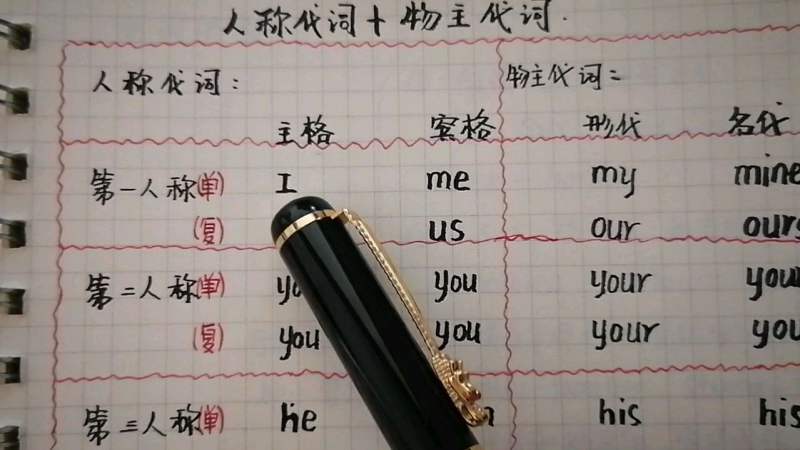 人称代词+物主代词.
人称代词: 物主代词:
主格 宾格 形代 名代
第一人称(单) I me my mine
(复) us our ours
第二人称(单) you your
(复) you you your
第三人称(单) he his his